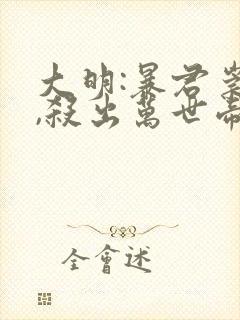 大明:暴君崇
,殺出萬世帝
全會述